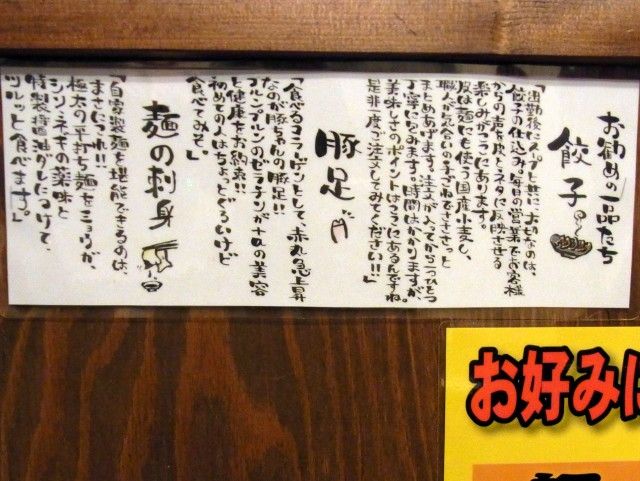 お勧めの一品たち
餃子
「出勤後に人のと共に大切なのは、
餃子の仕込み。毎日の営業でお客様
からの声を皮とネタに反映させる
楽しみがココにあります。
皮は麺にも使う国産小麦し、
職人の気合いの手ごねでささっと
まとめあげます。注文が入ってから一つひとつ
丁寧に包みます。時間はかかりますが、
美味しさのポイントはココにあるんですね。
是非一度ご注文してみてください!!」
豚足
「食べるコラーゲンとして、赤丸急上昇
なのが豚ちゃんの豚足!!
プルンプルンのゼラチンが女性の美容
と健康をお約束!!
初めての人はちょっとぐろいけど
食べてみそ。」
麺の刺身
「自家製麺を堪能できるのは、
まさにコレ!!
極太の平打ち麺をミョウガ、
シソ、ネギの薬味と
特製醤油ダレにつけて、
ツルッと食べます。」
お好みに